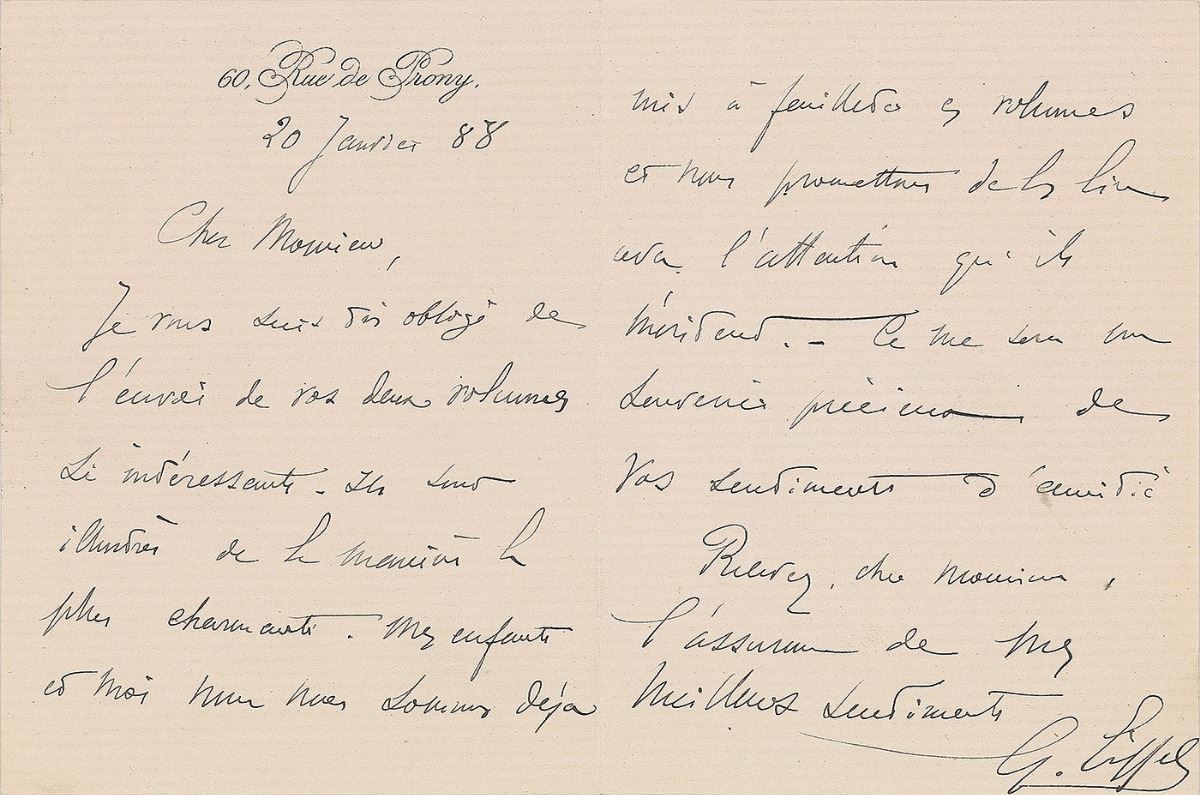 60, Rue de Prony.
20 Janvier 88
Cher Monsieur,
Je vous suis très obligé de
l'envoi de vos deux volumes
si intéressants - Ils sont
illustrés de la manière la
plus charmante. Mes enfants
et moi nous nous sommes déjà
mis à feuilleter ces volumes
et nous promettons de les lire
avec l'attention qu'ils
méritent. - Ce me sera un
souvenir précieux de
vos sentiments d'amitié
Recevez, cher Monsieur,
l'assurance de mes
meilleurs sentiments
G. Eiffel